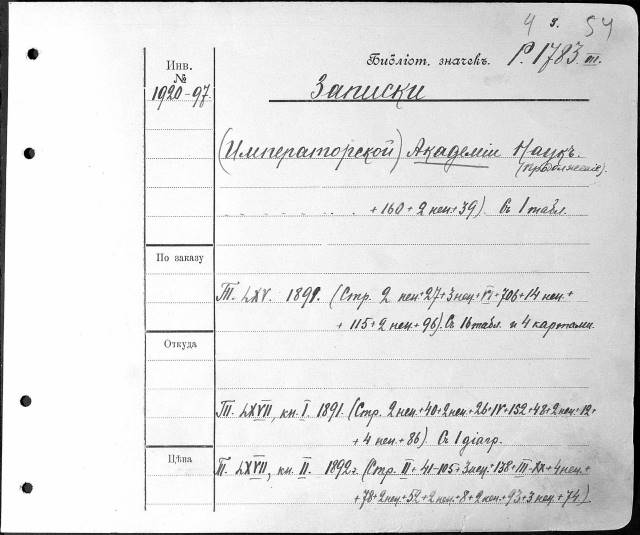 4 з. 54
Инв.
№
1920-97.
Библіот. значекъ. Р. 1783. III.
Записки
(Императорской) Академіи Наукъ.
(продолженіе).
+ 160 + 2 нен + 39). Съ 1 табл.
По заказу
Т. LXV. 1891. (Стр. 2 нен + 27 + 3 нен + VI + 706 + 14 нен. +
+ 115 + 2 нен + 96). Съ 16 табл. и 4 картами.
Откуда
Т. LXVII, кн. I. 1891. (Стр. 2 нен. + 40 + 2 нен. + 26 + IV + 152 + 48 + 2 нен. + 12 +
+ 4 нен. + 86). Съ 1 діагр.
Цѣна
Т. LXVII, кн. II. 1892 г. (Стр. II + 41-105 + 3 нен. + 138 + III-XX + 4 нен. +
+ 78 + 2 нен. + 52 + 2 нен. + 8 + 2 нен. + 93 + 3 нен. + 74).